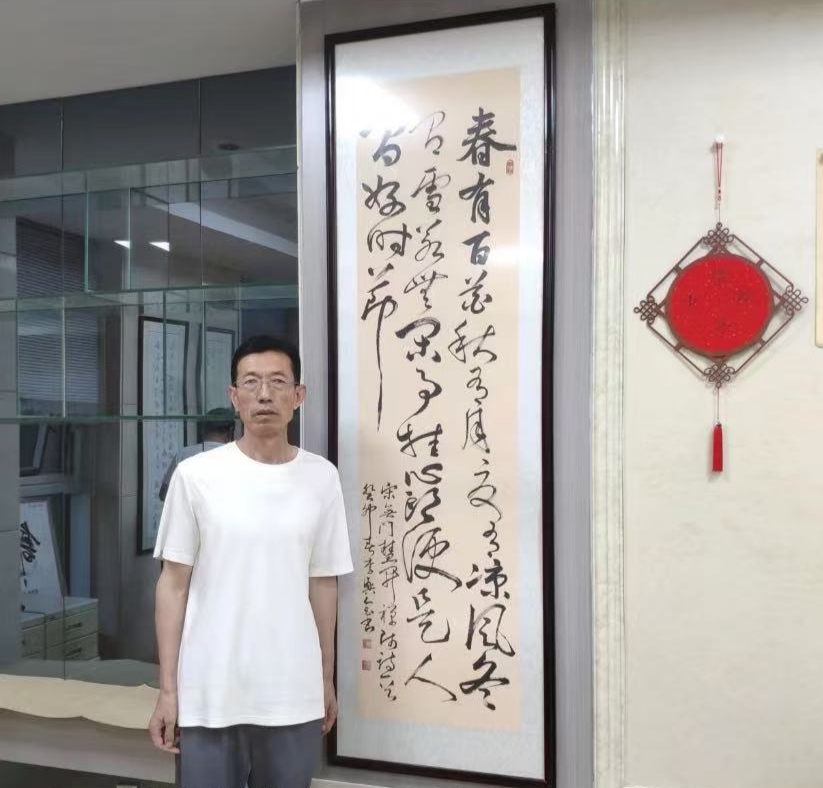 春有百花秋有月夏有凉风冬
有雪若無闲事挂心头便是人
间好时节
宋無门慧开禅师诗
癸卯春李兴书